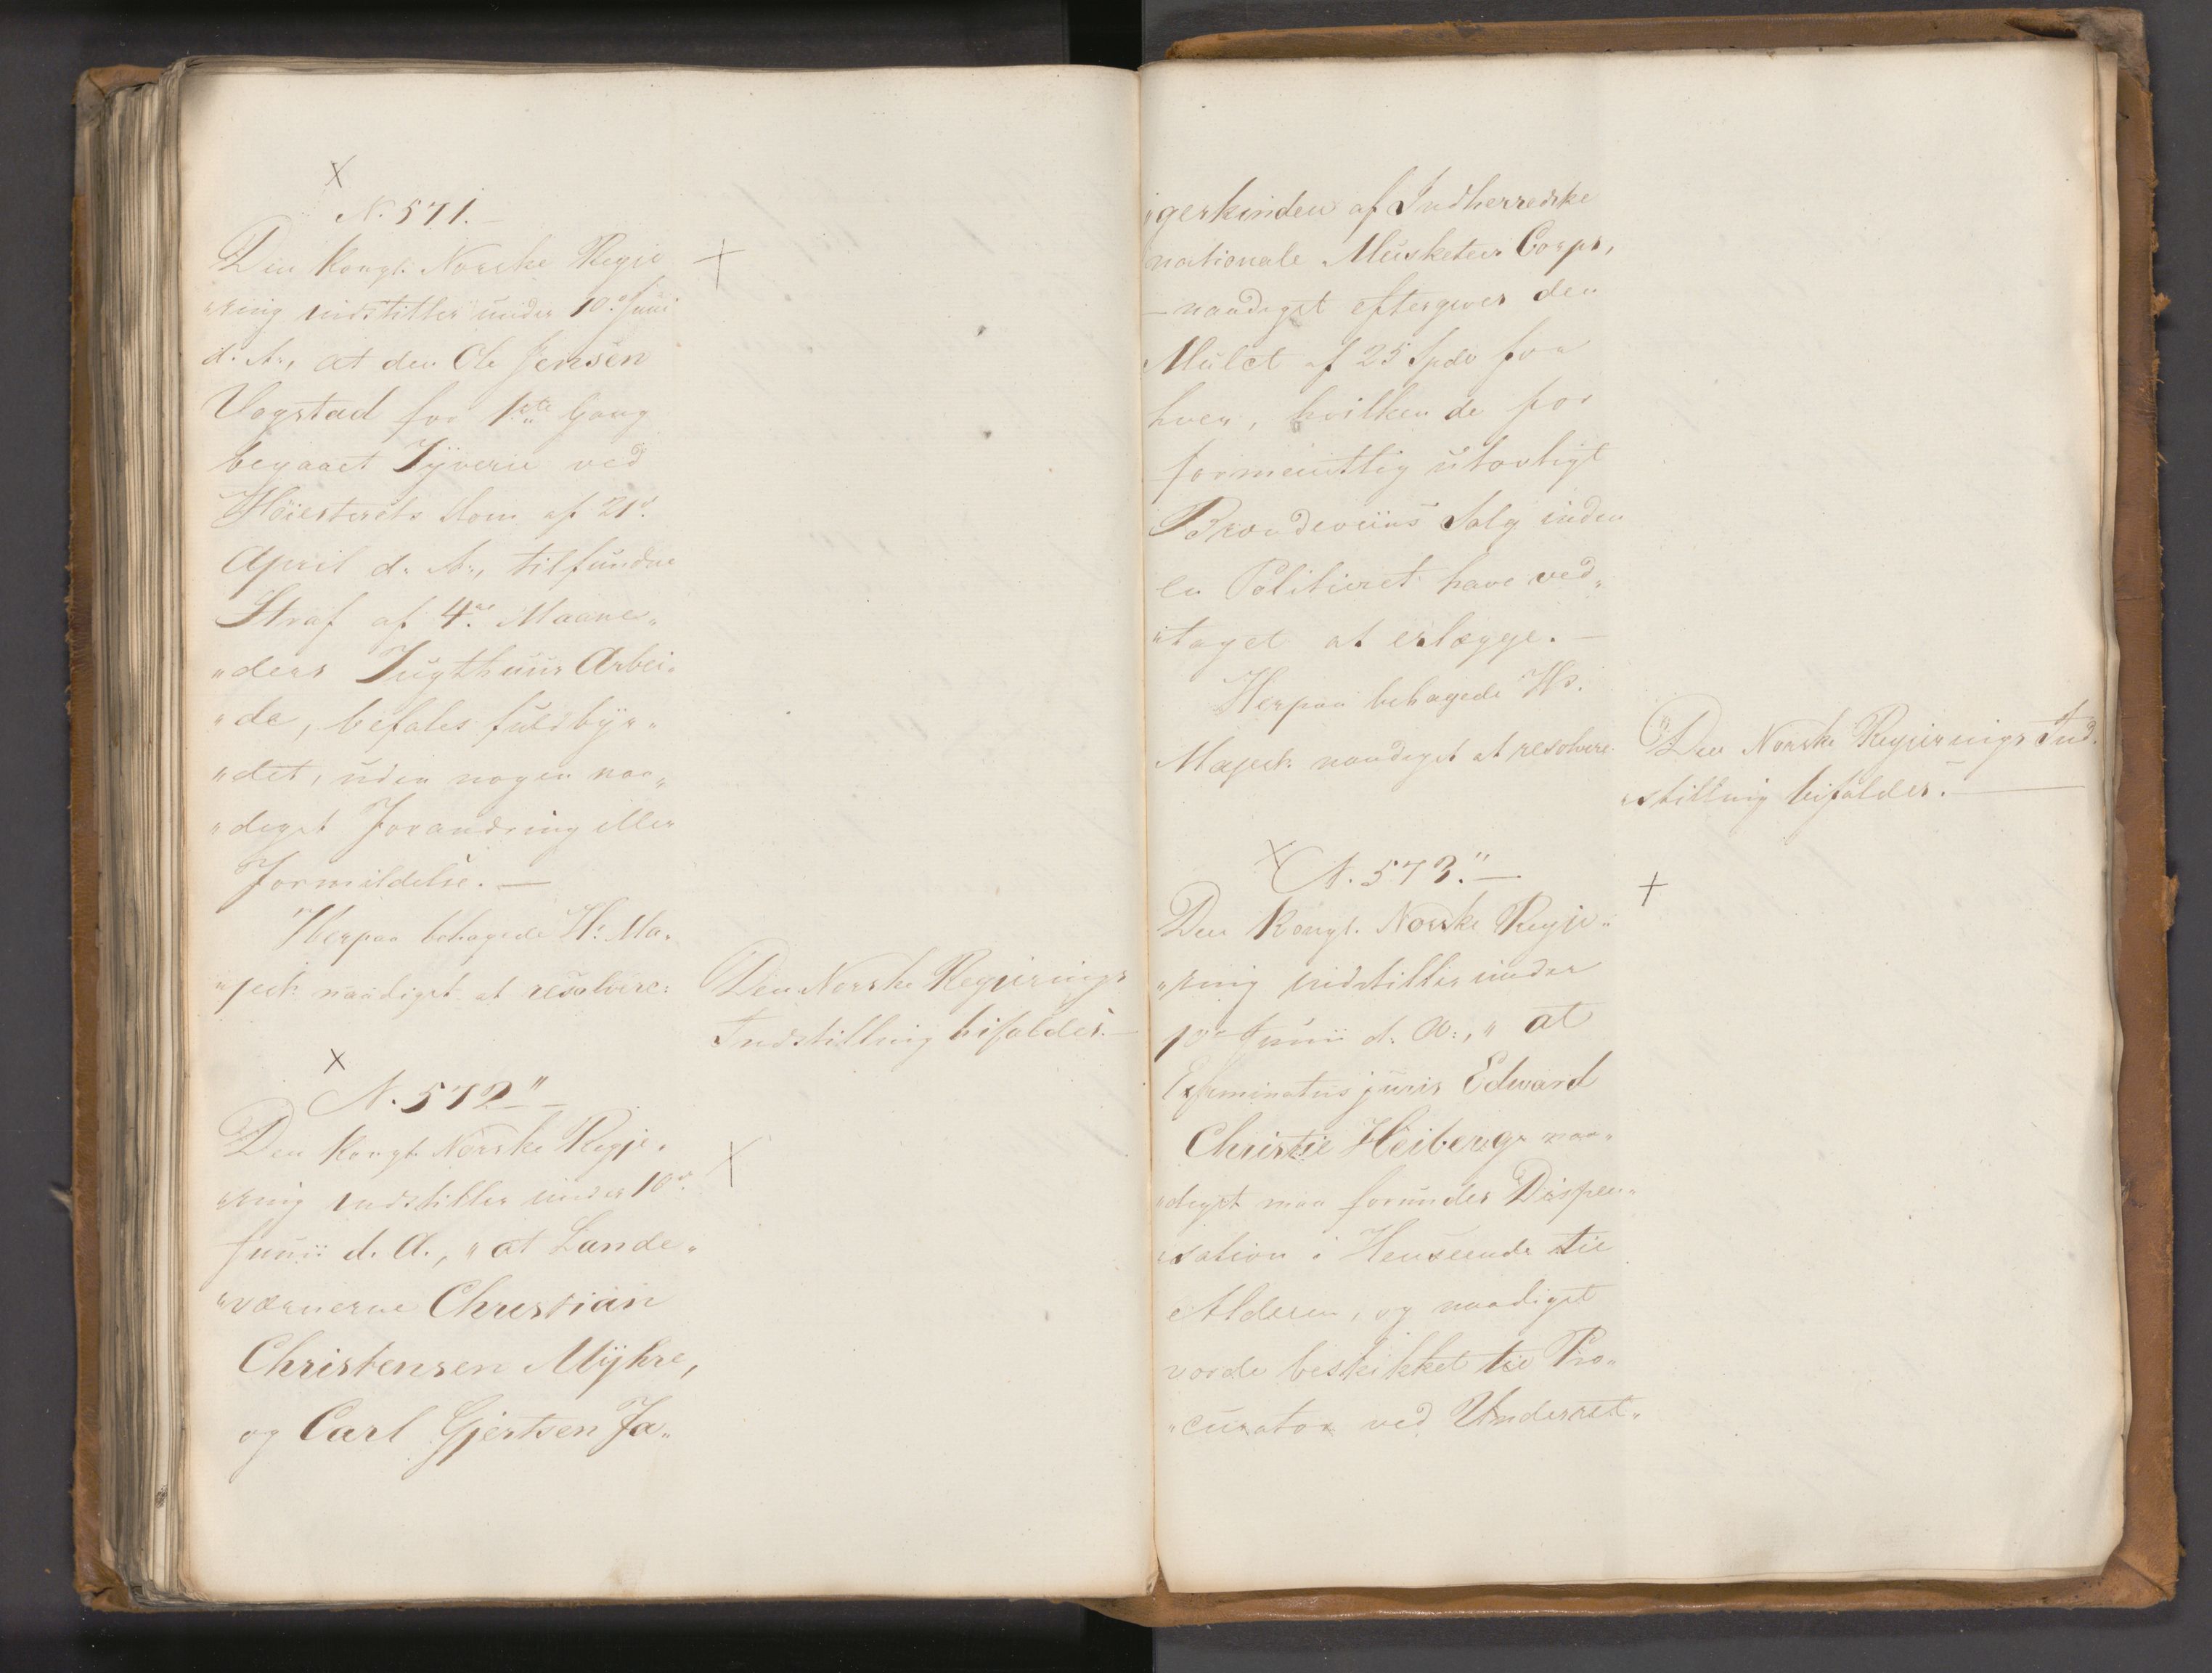 N. 571.
Den Kongl. Norske Regje
"ring indstiller under 10. Juni
d. A., at den Ole Jensen
Vogstad for 1ste Gang
begaaet Tyverie ved
Höiesterets Dom af 21de
April d. A., tilfundne
Straf af 4re Maane„
"ders Tugthuus Arbei„
"de, befales fuldbyr„
"det, uden nogen naa„
"digst Forandring eller
Formildelse. —
Herpaa behagede Hs. Ma„
"jest. naadigst at resolvere:
Den Norske Regjerings
Indstilling bifaldes. —
N. 572" —
Den Kongl. Norske Regje„
"ring indstiller under 10de
Junii d. A., "at Lande„
"værnerne Christian
Christensen Myhre,
og Carl Gjertsen Ja„
"gerhinden af Indherredske
nationale Musketeer Corps,
— naadigst eftergives den
Mulct af 25 Spd. for
hver, hvilken de for
formentlig ulovligt
Brændeviins Salg inden
en Politieret have ved„
"taget at erlægge. —
Herpaa behagede Hs.
Majest. naadigst at resolvere:
Den Norske Regjerings Ind„
"stilling bifaldes. —
N. 573." —
Den Kongl. Norske Regje„
"ring indstiller under
10de Junii d. A., "at
Examinatus juris Edvard
Christie Heiberg naa„
"digst maa forundes Dispen„
"sation i Henseende til
Alderen, og naadigst
vorde beskikket til Pro„
"curator ved Underret„